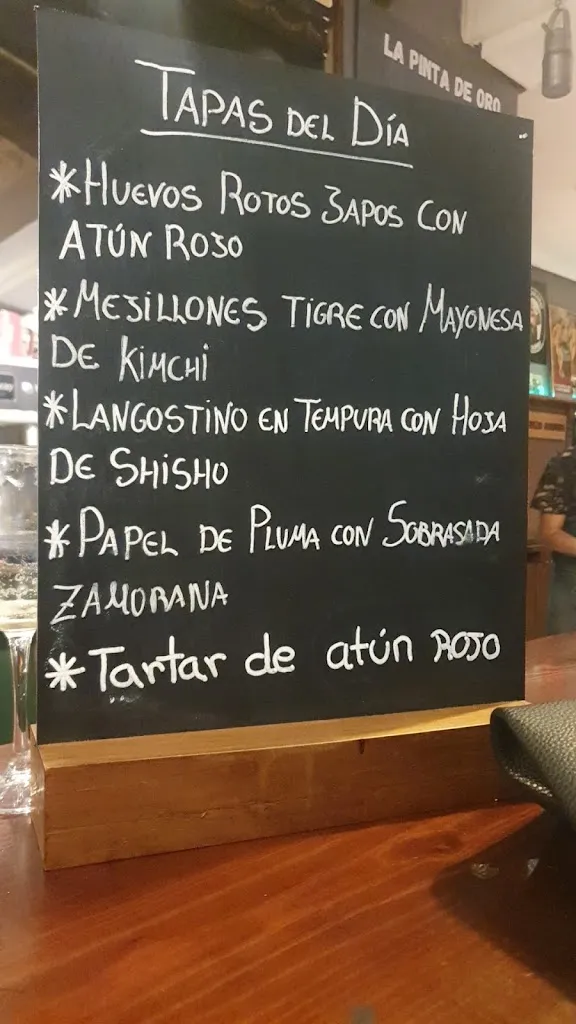 LA PINTA DE ORO
TAPAS DEL DÍA
*HUEVOS ROTOS 3APOS CON
ATÚN ROJO
*MEJILLONES TIGRE CON MAYONESA
DE KIMCHI
*LANGOSTINO EN TEMPURA CON HOJA
DE SHISHO
*PAPEL DE PLUMA CON SOBRASADA
ZAMORANA
*Tartar de atún ROJO